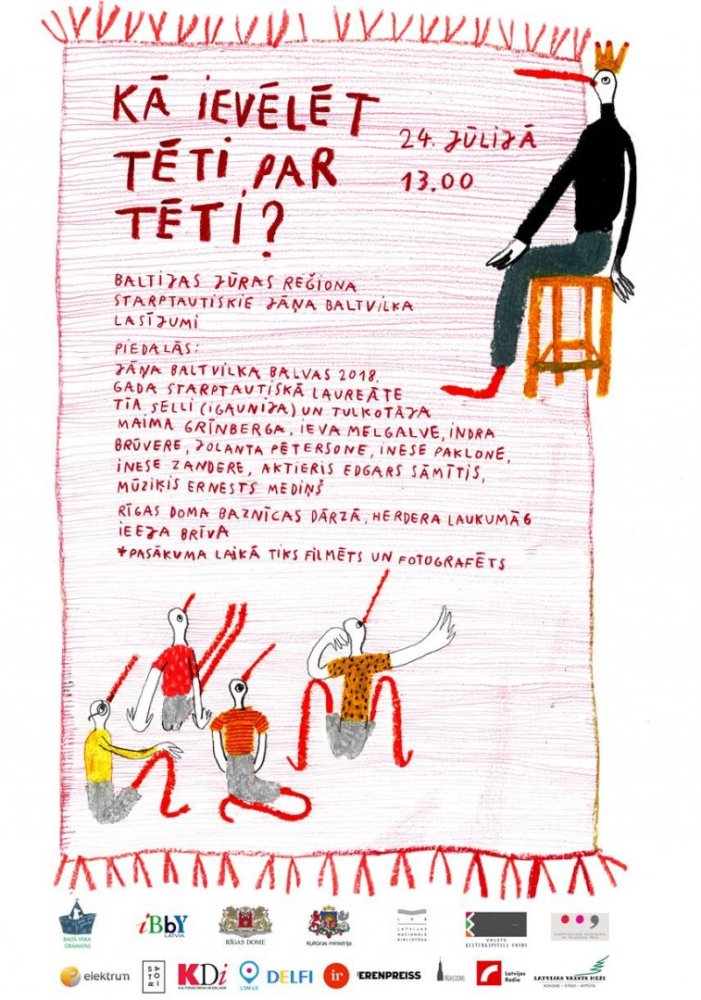 KĀ IEVĒLĒT
TĒTI PAR
TĒTI?
24. JŪLIJĀ
13.00
BALTIJAS JŪRAS REĢIONA
STARPTAUTISKIE JĀŅA BALTVILKA
LASĪJUMI
PIEDALĀS:
JĀŅA BALTVILKA BALVAS 2018.
GADA STARPTAUTISKĀ LAUREĀTE
TĪA SELLI (IGAUNIJA) UN TULKOTĀJA
MAIMA GRĪNBERGA, IEVA MELGALVE, INDRA
BRŪVERE, JOLANTA PĒTERSONE, INESE PAKLONE,
INESE ZANDERE, AKTIERIS EDGARS SĀMĪTIS,
MŪZIĶIS ERNESTS MEDIŅŠ
RĪGAS DOMA BAZNĪCAS DĀRZĀ, HERDERA LAUKUMĀ 6
IEEJA BRĪVA
*PASĀKUMA LAIKĀ TIKS FILMĒTS UN FOTOGRAFĒTS
BALTĀ VILKA
GRĀMATAS
iBbY
LATVIA
RĪGAS DOME
Kultūras ministrija
LATVIJAS
NACIONĀLĀ
BIBLIOTĒKA
VALSTS
KULTŪRKAPITĀLA FONDS
elektrum
SATORI
KDi
LSM.LV
DELFI
ir
ERENPREISS
RĪGAS DOMS
Latvijas
Radio
LATVIJAS VALSTS MEŽI